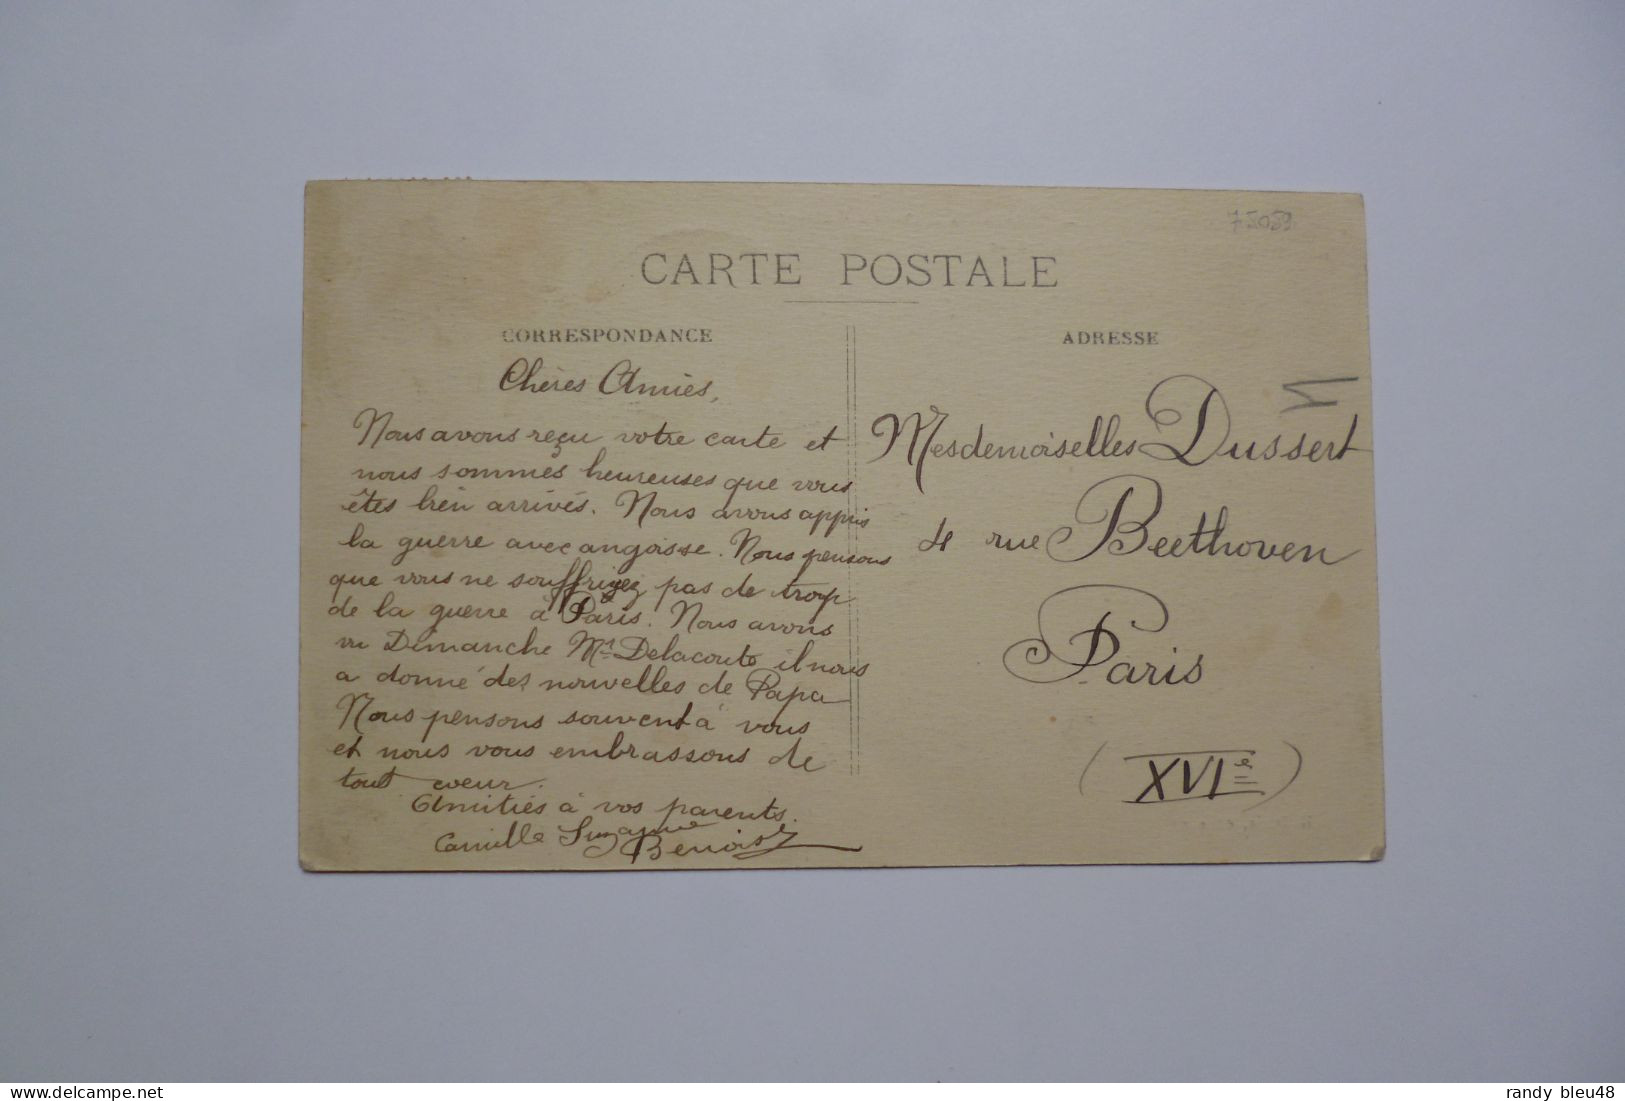 75059
CARTE POSTALE
CORRESPONDANCE
Chères Amies,
Nous avons reçu votre carte et
nous sommes heureuses que vous
êtes bien arrivés. Nous avons appris
la guerre avec angoisse. Nous pensons
que vous ne souffrirez pas de trop
de la guerre à Paris. Nous avons
vu Dimanche Mr Delacoute il nous
a donné des nouvelles de Papa
Nous pensons souvent à vous
et nous vous embrassons de
tout cœur.
Amitiés à vos parents.
Camille Suzanne
Benoist
ADRESSE
Mesdemoiselles Dussert
4 rue Beethoven
Paris
(XVIe)
randy bleu48